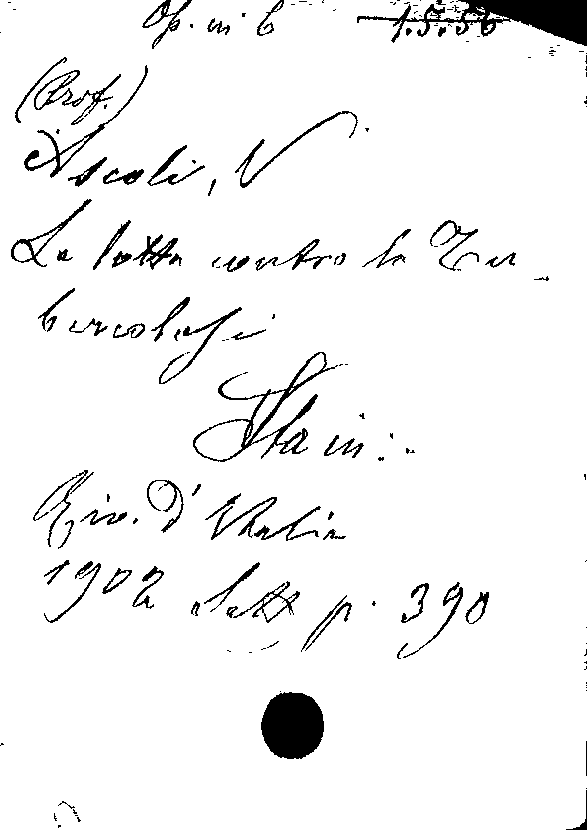 Op. in 6 1.5.56
(Prof.)
Ascoli, V
La lotta contro la Tu-
bercolosi
Sta in:
Riv. d'Italia
1902 Sett p. 390